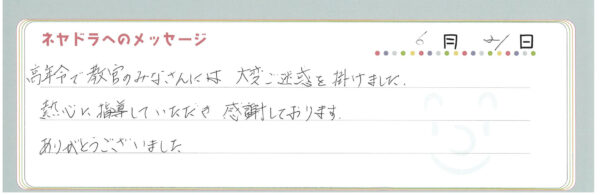 ネヤドラへのメッセージ
6月21日
高年令で教官のみなさんには 大変ご迷惑を掛けました.
熱心に指導していただき 感謝しております.
ありがとうございました